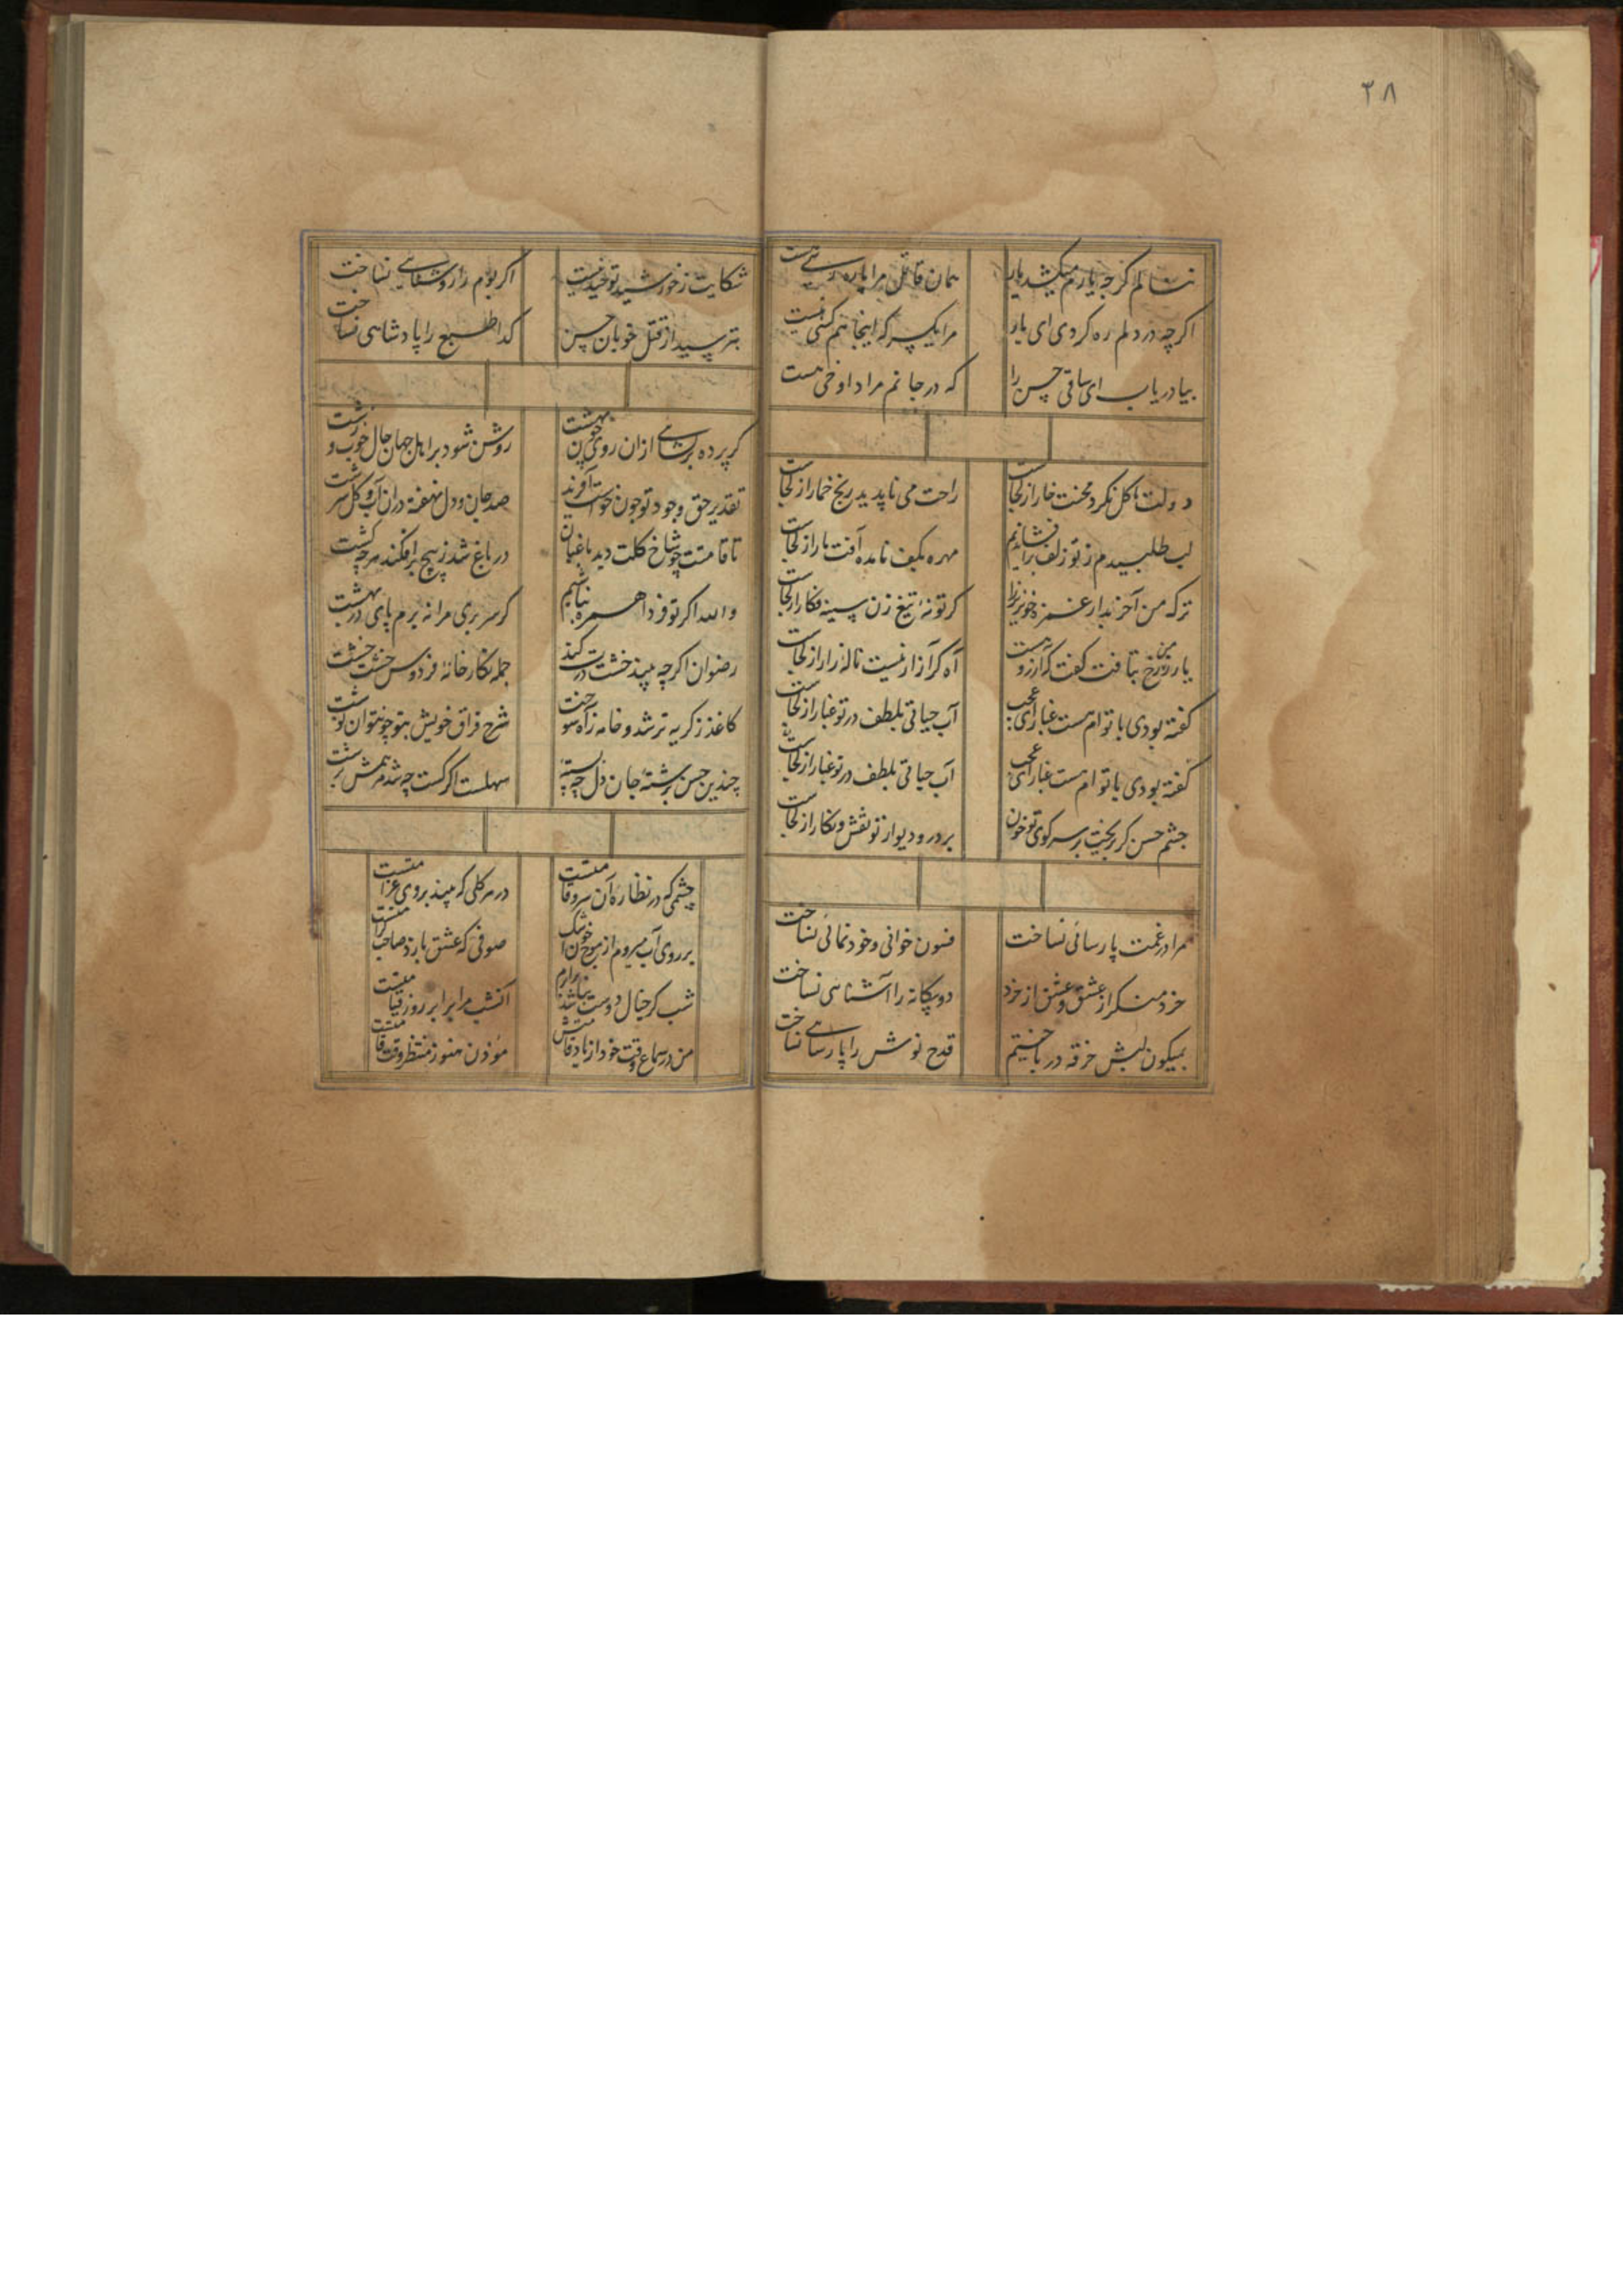 ۳۸
ننالم گرچه یارم میکشد یار
همان قاتل مرا یاره رسی هست
اکرچه در دلم ره کردی ای یار
مرا یکسر که اینجا هم کسی نیست
بیا دریاب ای ساقی حسن را
که در جانم مراد او خمی هست
دولت ما کل نکرد محنت خار از کجاست
راحت می ناپدید رنج خمار از کجاست
لب طلبیدم ز تو زلف برافشانیم
مهره بکف نامده آفت مار از کجاست
ترکه من آخر بدار غمزه خونریز را
کر تو نهٔ تیغ زن سینه فکار از کجاست
یار ز من رخ بتافت کفت که آزرو هست
آه کر آزار نیست نالهٔ زار از کجاست
کفته بودی با توام هست غبار ای عجب
آب حیاتی بلطف در تو غبار از کجاست
کفته بودی با توام هست غبار ای عجب
آب حیاتی بلطف در تو غبار از کجاست
چشم حسن کر نریخت بر سر کوی تو خون
بر در و دیوار تو نقش و نکار از کجاست
مرا در غمت پارسائی نساخت
فسون خوانی و خودنمائی نساخت
خرد منکر از عشق و عشق از خرد
دو بیکانه را آشنایی نساخت
بمیکون لبش خرقه درباختیم
قدح نوش را پارسایی نساخت
شکایت ز خورشید تو خیره نیست
اکر بوم را روشنایی نساخت
بترسید از قتل خوبان حسن
کدا طبع را پادشاهی نساخت
کر پرده برکشایی از ان روی چون بهشت
روشن شود بر اهل جهان حال خوب و زشت
تقدیر حق وجود تو چون خواست آفرید
صد جان و دل نهفته در ان آب و کل سرشت
تا قامتت چو شاخ کلت دید باغبان
در باغ شد ز بیخ برافکند هرچه کشت
والله اکر تو فردا همره نباشیم
کر سر بری مرا نه برم پای در بهشت
رضوان اکرچه بیند خشت درت کند
جمله نکارخانهٔ فردوس خشت خشت
کاغذ ز کریه تر شد و خامه ز آه سوخت
شرح فراق خویش بتو چون توان نوشت
چندین حسن برشتهٔ جان دل چه بسته
سهلست اکر کسست چه شد هم رشت
چشمی که در نظارهٔ آن سرو قامتست
در هر کلی که بیند بروی غرامتست
بر روی آب میروم از موج خون اشک
صوفی که عشق بازد صاحب کرامتست
شب کر خیال دوست نباشد
امشب مرا برابر روز قیامتست
من در سماع وقت خود از یاد قامتش
مؤذن هنوز منتظر وقت قامتست